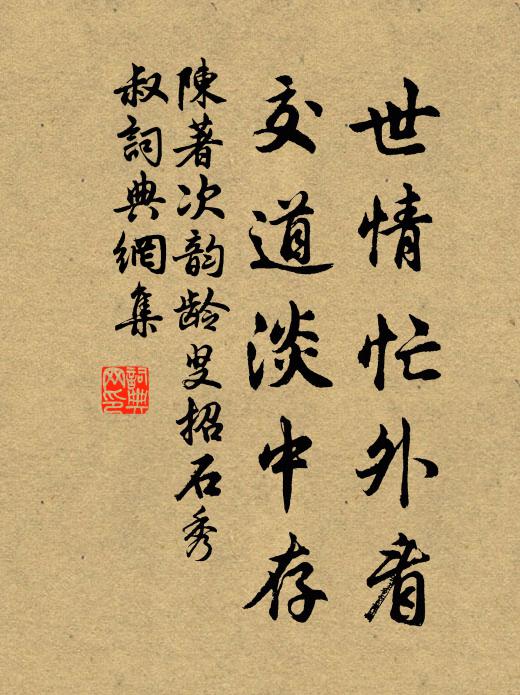 世情忙外看
交道淡中存
陳著次韵龄叟招石秀
叔詞典網集
詞典网印